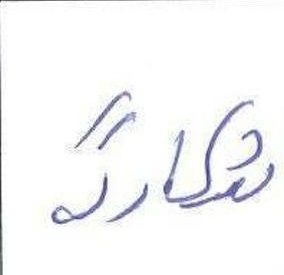 شکارگه